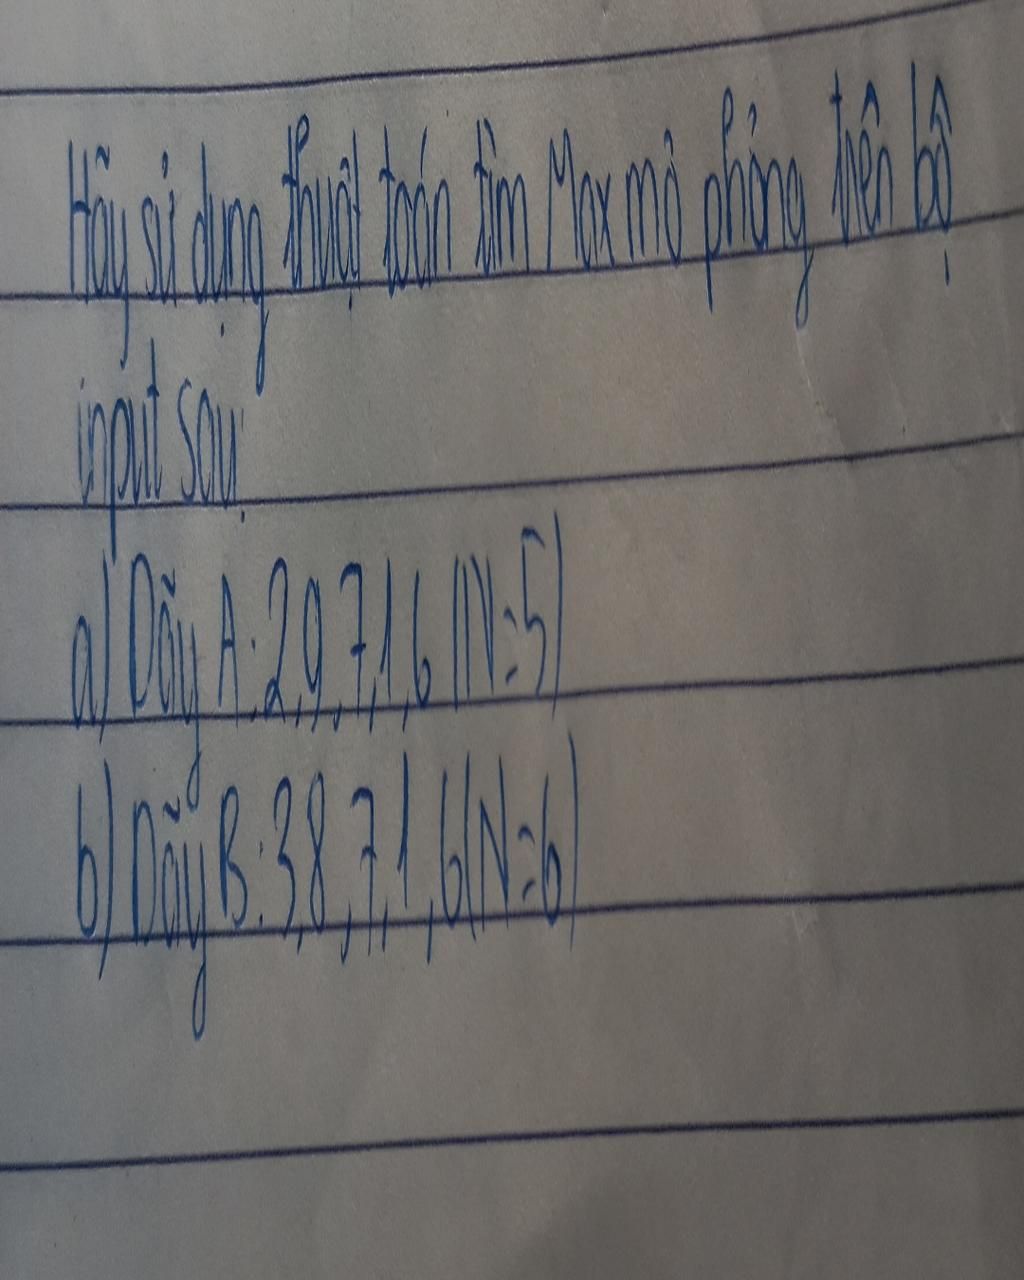 Hãy sử dụng thuật toán tìm Max mô phỏng trên bộ
input sau:
a) Dãy A: 2, 9, 7, 1, 6 (N=5)
b) Dãy B: 3, 8, 7, 1, 6 (N=6)